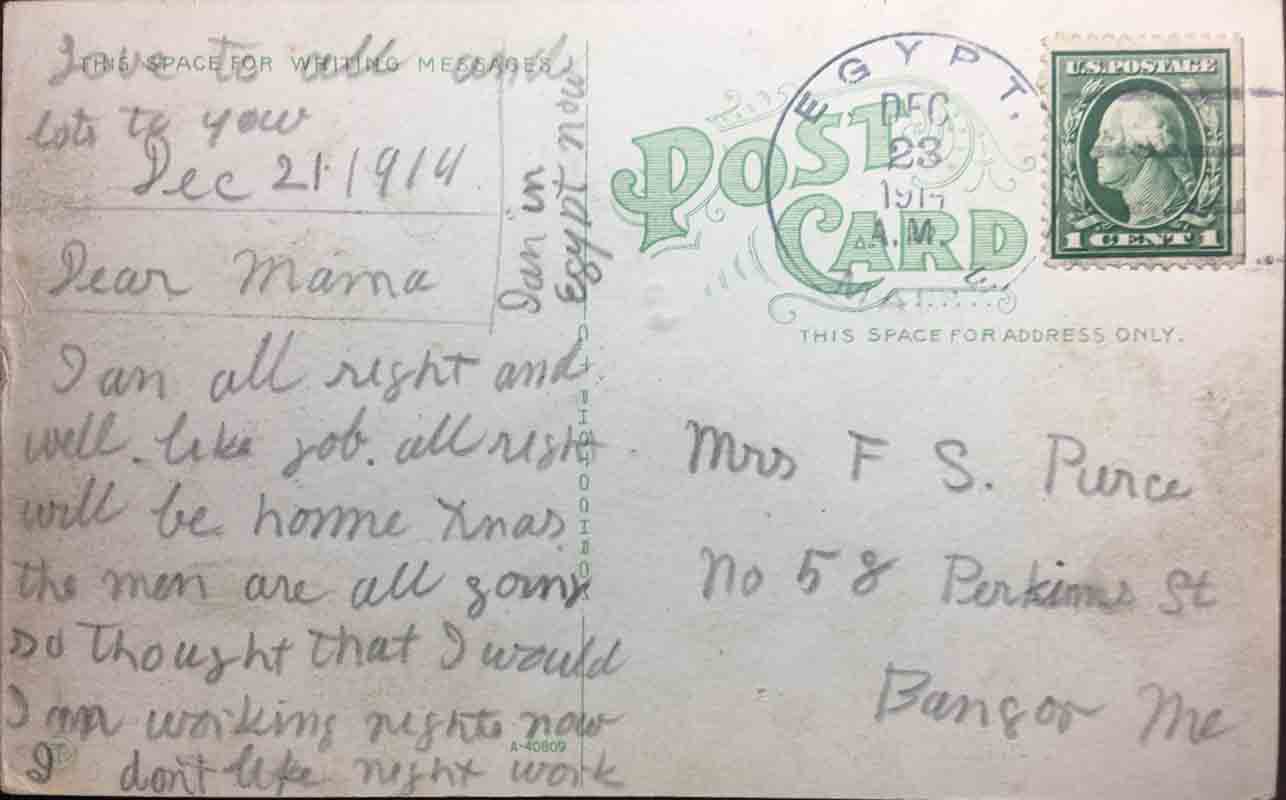 Love to all and
lots to you
THIS SPACE FOR WRITING MESSAGES
Dec 21. 1914.
Dear Mama
I am in
Egypt now
I am all right and
well. like job. all right
will be home Xmas.
the men are all going
so thought that I would
I am working nights now
I don't like night work
A-40809
POST CARD
EGYPT.
DEC
23
1914
A.M.
U.S. POSTAGE
1 CENT 1
THIS SPACE FOR ADDRESS ONLY.
Mrs F S. Pierce
No 58 Perkins St
Bangor Me